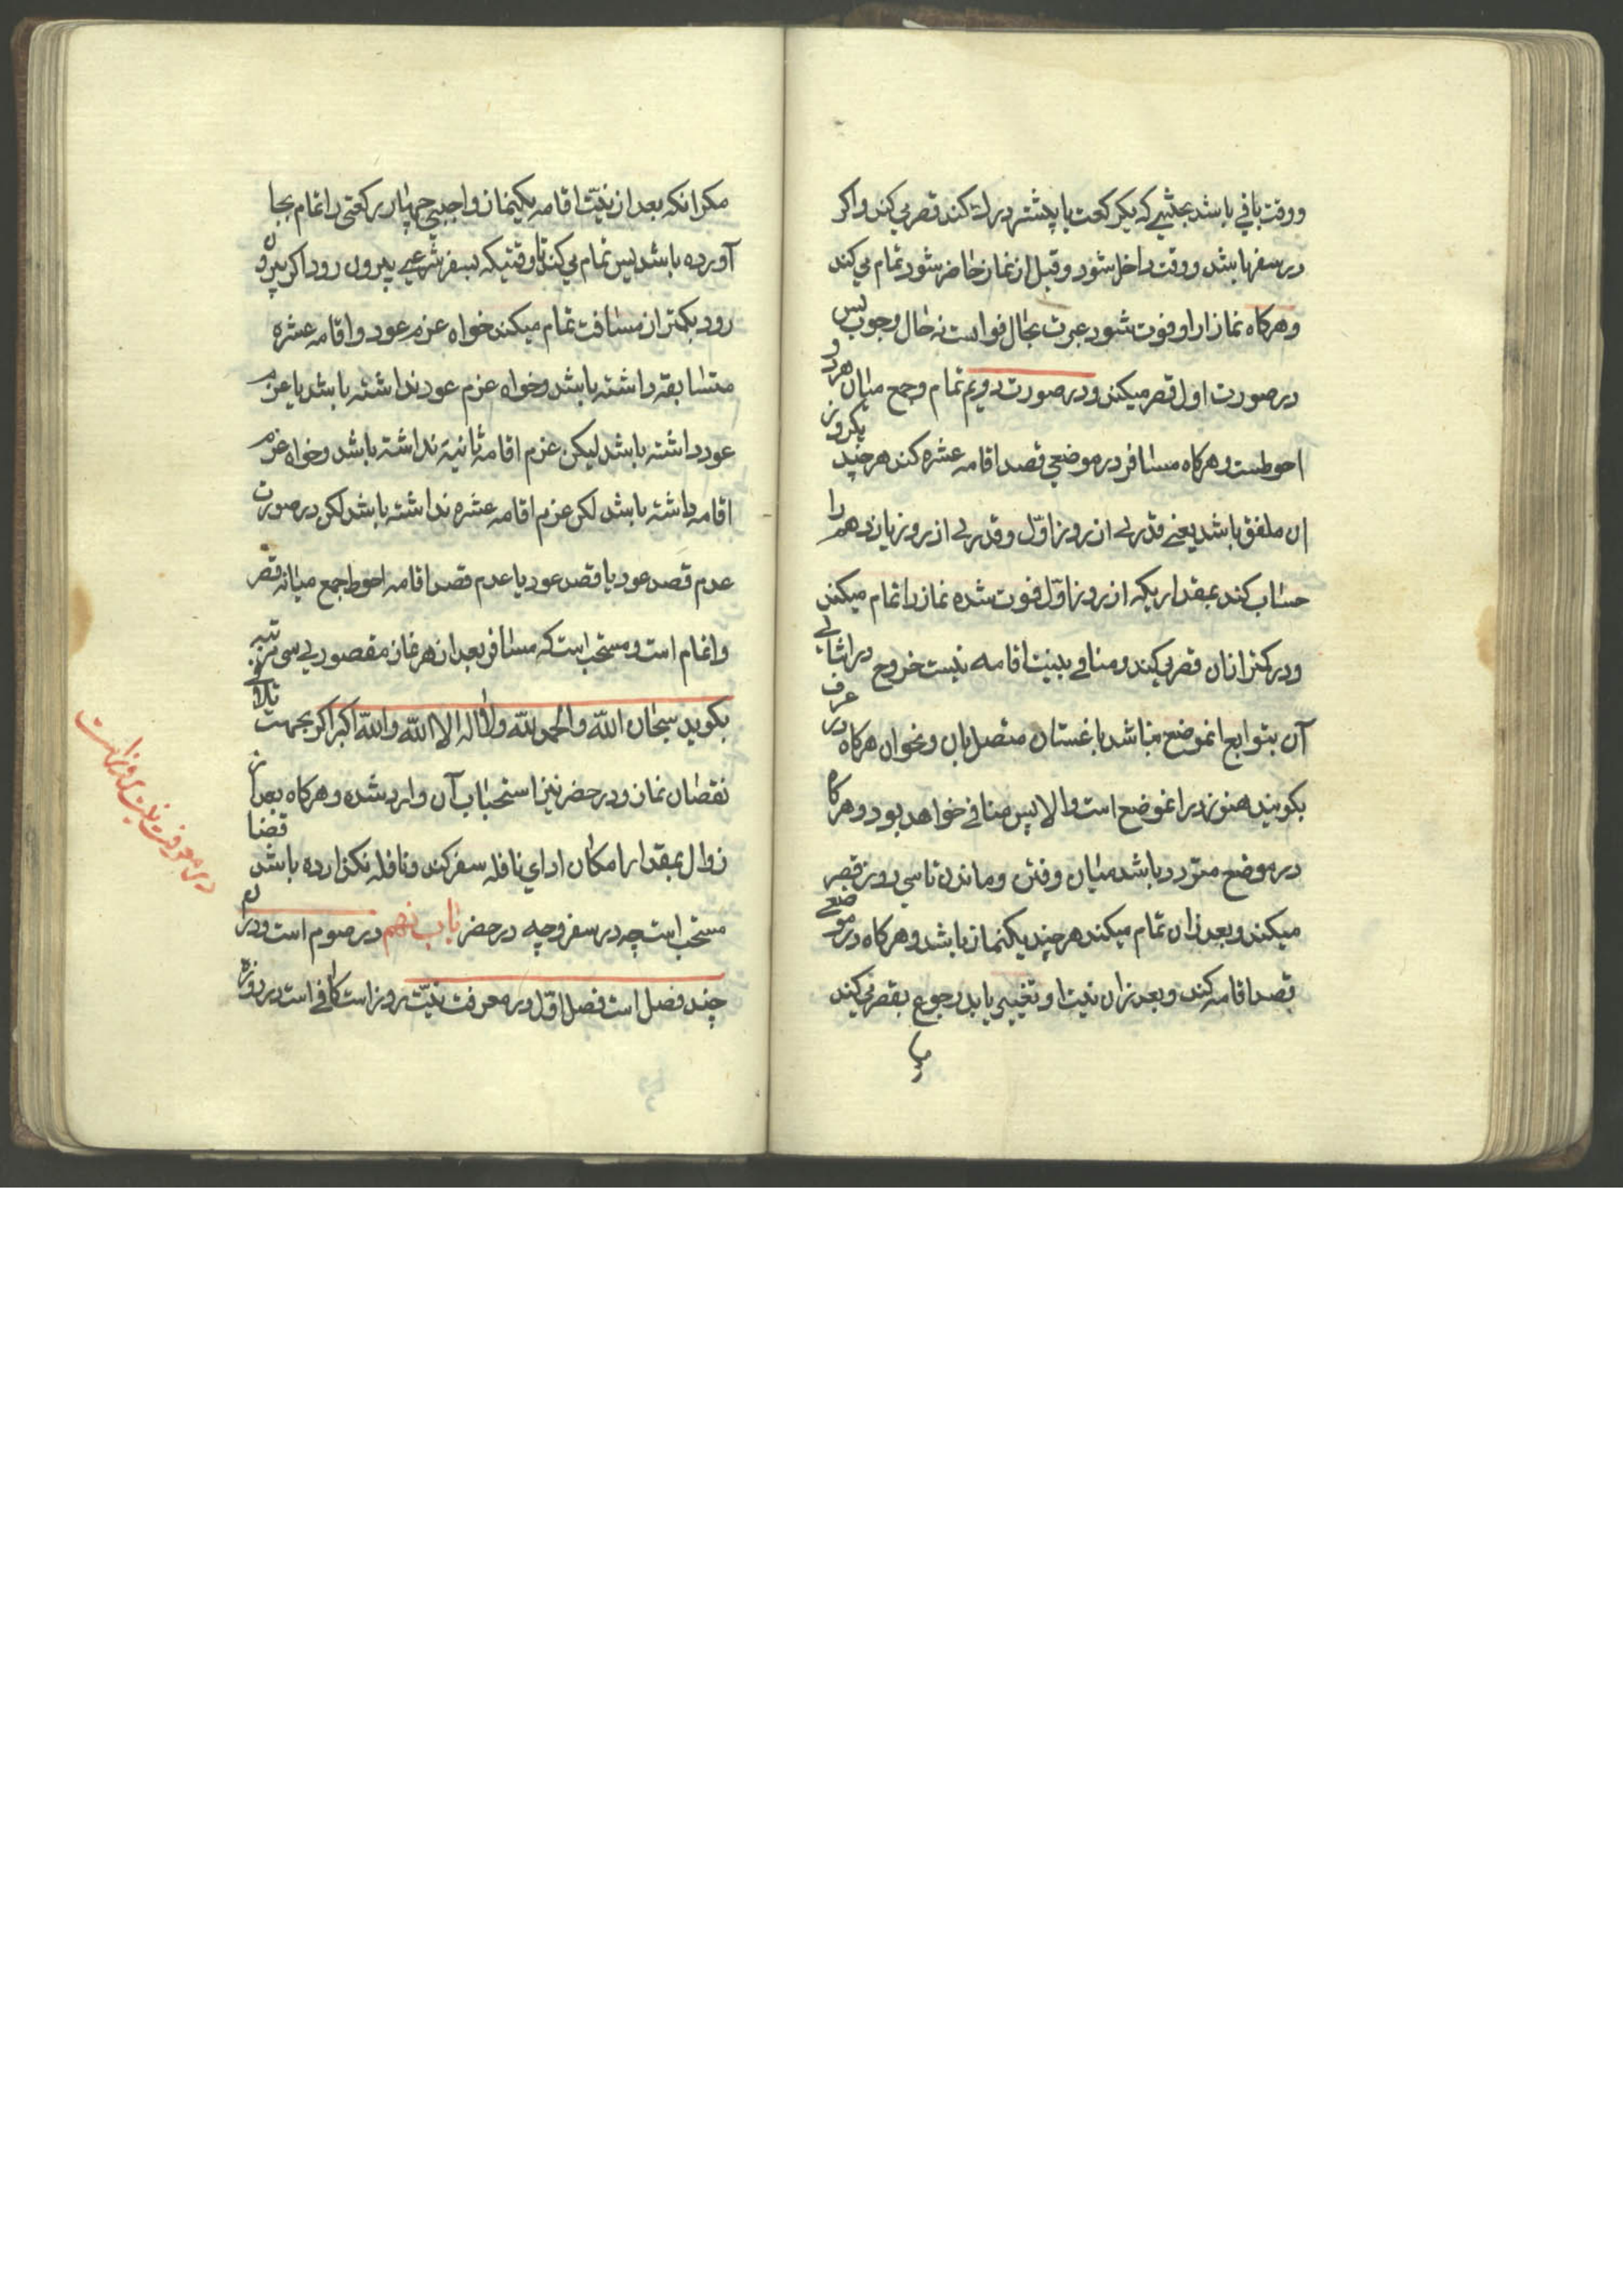 ووقت باقی باشد بحیثیتی که یکرکعت یا پیشتر درک کند قصر می‌کند واکر
در سفر باشد ووقت داخل شود وقبل از نماز حاضر شود تمام می‌کند
وهرکاه نماز از او فوت شود عبرت بحال فوا است نه حال وجوب پس
در صورت اول قصر میکند ودر صورت دویم تمام وجمع میان هر دو
احوطست وهرکاه مسافر در موضعی قصد اقامه عشره کند هر چند یکروز
ان ملفق باشد یعنی قدری از روز اوّل وقدری از روز یازدهم را
حساب کند بمقداریکه از روز اوّل فوت شده نماز را تمام میکند
ودر کمتر از ان قصر می‌کند ومنافی بنیت اقامه نیست خروج در اثنای
آن بتوابع انموضع مباشد باغستان متصل بان ونحو ان هرکاه در عرف
بکویند هنوز در انموضع است والا پس منافی خواهد بود وهرکاه
در موضع متردد باشد میان رفتن وماندن تا سی روز قصر
میکند وبعد از ان تمام میکند هر چند یکنماز باشد وهرکاه در موضعی
قصد اقامه کند وبعد از ان نیت او تغییر یابد رجوع بقصر می‌کند
مکر انکه بعد از نیّت اقامه یکنماز واجبی چهار رکعتی را تمام بجا
آورده باشد پس تمام می‌کند تا وقتیکه بسفر شرعی بیرون رود اکر بیرون
رود بکمتر از مسافت تمام میکند خواه عزم عود واقامه عشره
مستابقه داشته باشد وخواه عزم عود نداشته باشد یا عزم
عود داشته باشد لیکن عزم اقامه ثانیة نداشته باشد وخواه عزم
اقامه داشته باشد لکن عزم اقامه عشره نداشته باشد لکن در صورت
عدم قصد عود یا قصد عود یا عدم قصد اقامه احوط جمع میانه قصر
واتمام است ومستحب است که مسافر بعد از هر نماز مقصوری سی مرتبه
بکوید سبحان الله والحمد لله ولا اله الا الله والله اکبر اکر بجهت تلافی
نقصان نماز ودر حضر نیز استحباب آن وارد شده وهرکاه بعد از
زوال بمقدار امکان ادای نافله سفر کند ونافله نکذارده باشد قضا
مستحب است چه در سفر وچه در حضر باب نهم در صوم است ودر آن
چند فصل است فصل اوّل در معرفت نیّت روز است کافی است در روزه
در معرفت نیت روزه است